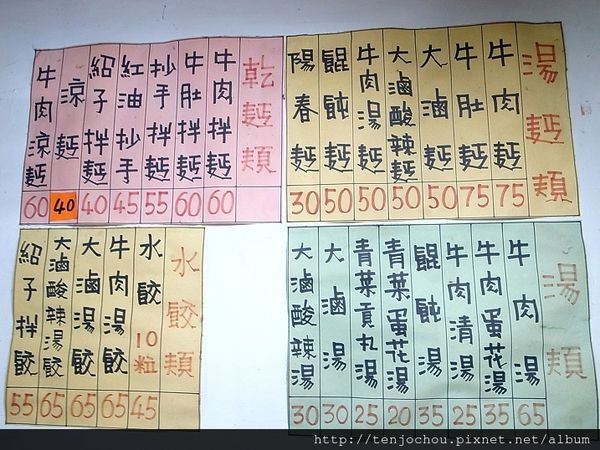 湯麵類
牛肉麵 75
牛肚麵 75
大滷麵 50
大滷酸辣麵 50
牛肉湯麵 50
餛飩麵 50
陽春麵 30
乾麵類
牛肉拌麵 60
牛肚拌麵 60
抄手拌麵 55
紅油抄手 45
紹子拌麵 40
涼麵 40
牛肉涼麵 60
湯類
牛肉湯 65
牛肉蛋花湯 35
牛肉清湯 25
餛飩湯 35
青葉蛋花湯 20
青葉貢丸湯 25
大滷湯 30
大滷酸辣湯 30
水餃類
水餃10粒 45
牛肉湯餃 65
大滷湯餃 65
大滷酸辣湯餃 65
紹子拌餃 55
http://tenjochou.pixnet.net/album